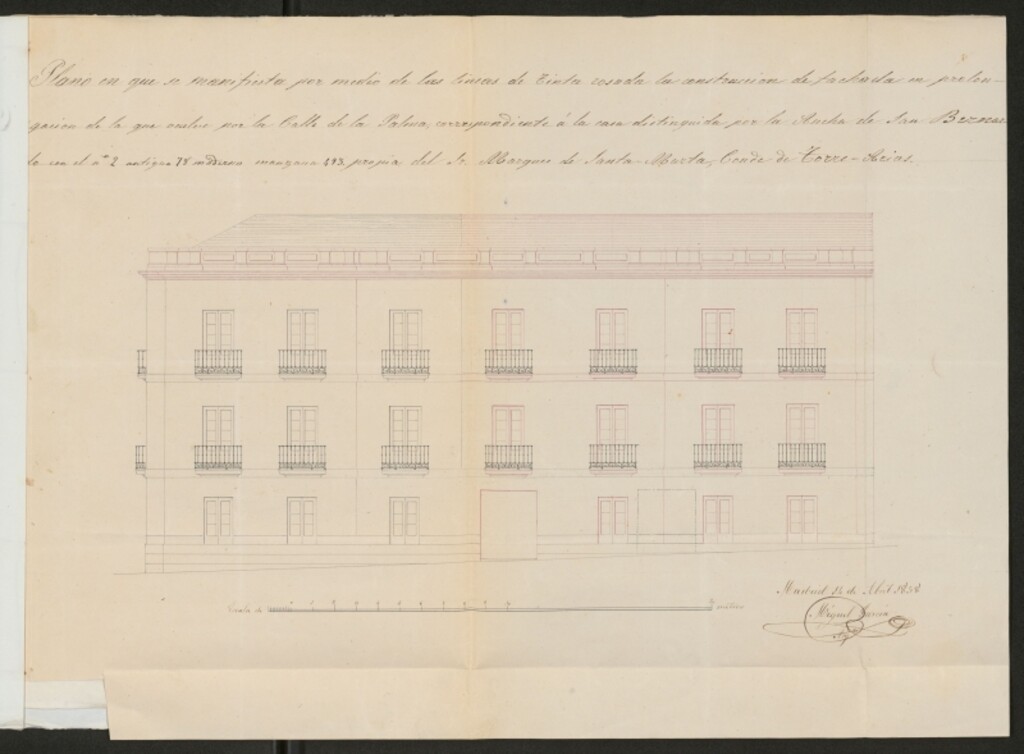 Plano en que se manifiesta por medio de las lineas de tinta rosada la construccion de fachada en prolon-
gacion de la que vuelve por la Calle de la Palma, correspondiente á la casa distinguida por la Ancha de San Bernar
do con el nº 2 antiguo 78 moderno manzana 493 propia del Sr. Marques de Santa-Marta, Conde de Torre-Arias.
Escala de metros
Madrid de Abril 1858
Miguel Garcia